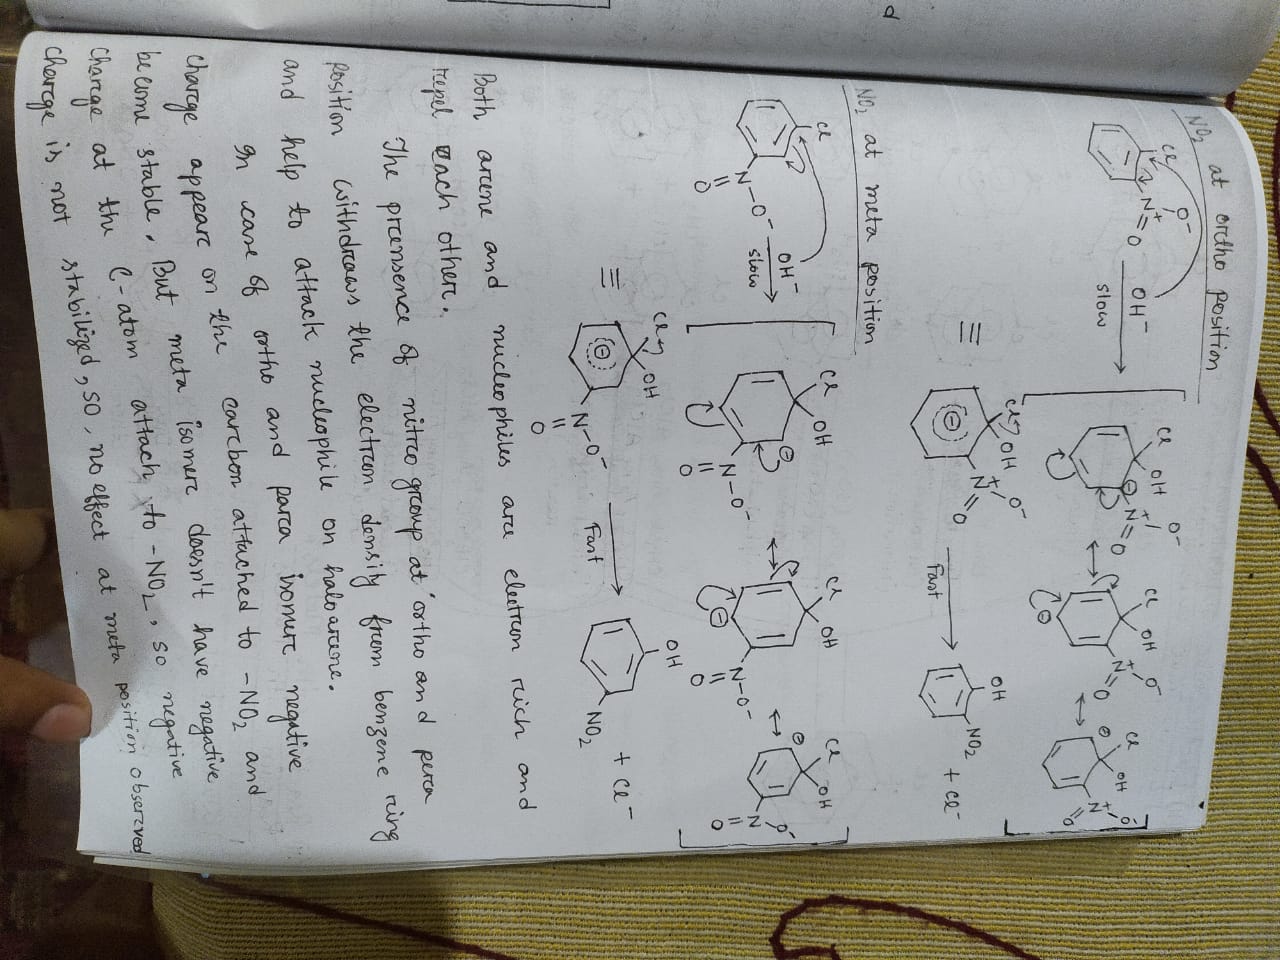 NO₂ at ortho position
Cl O⁻ N⁺ =O OH⁻ slow Cl OH O⁻ N⁺ =O ↔ Cl OH N⁺ O⁻ =O ↔ Cl OH N⁺ O⁻ O
≡ Cl OH N⁺ O⁻ =O Fast OH NO₂ + Cl⁻
NO₂ at meta position
Cl N–O⁻ O OH⁻ slow Cl OH N–O⁻ O ↔ Cl OH N–O⁻ O ↔ Cl OH O=N O⁻
≡ Cl OH N–O⁻ O Fast OH NO₂ + Cl⁻
Both arene and nucleophiles are electron rich and
repel each other.
The prensence of nitro group at ortho and para
position withdraws the electron density from benzene ring
and help to attack nucleophile on haloarene.
In case of ortho and para isomer negative
charge appear on the carbon attached to -NO₂ and
become stable. But meta isomer doesn't have negative
charge at the C-atom attach to -NO₂, so negative
charge is not stabilized, so, no effect at meta position observed